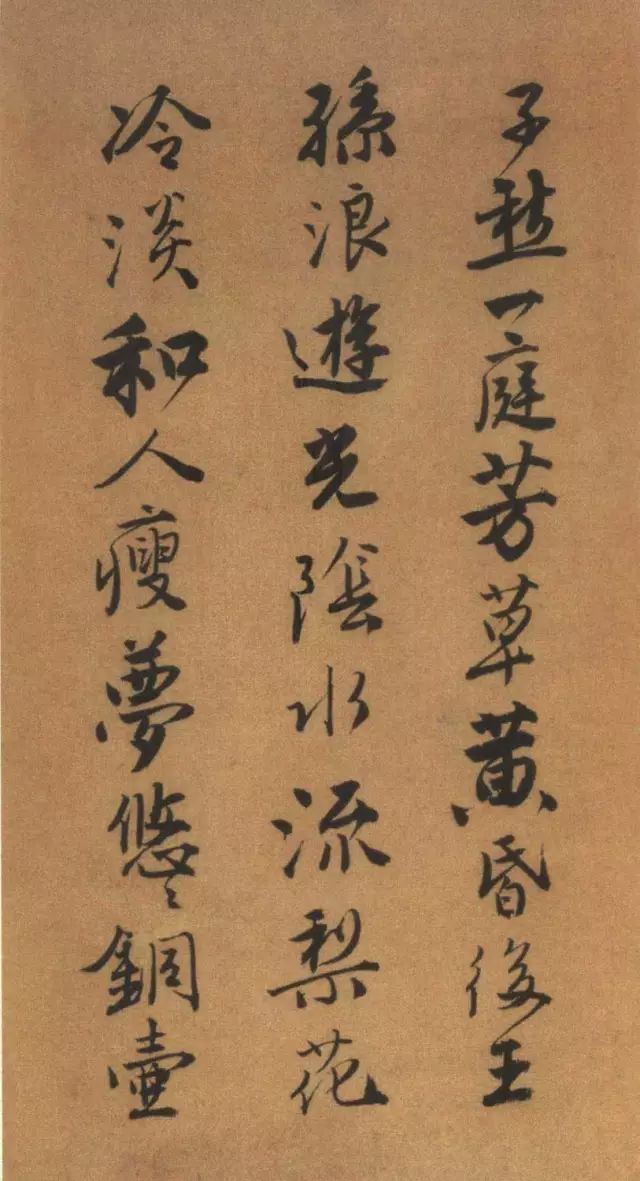 子愁一庭芳草黄昏後王
孫浪遊光陰水流梨花
冷淡和人瘦夢悠々銅壺